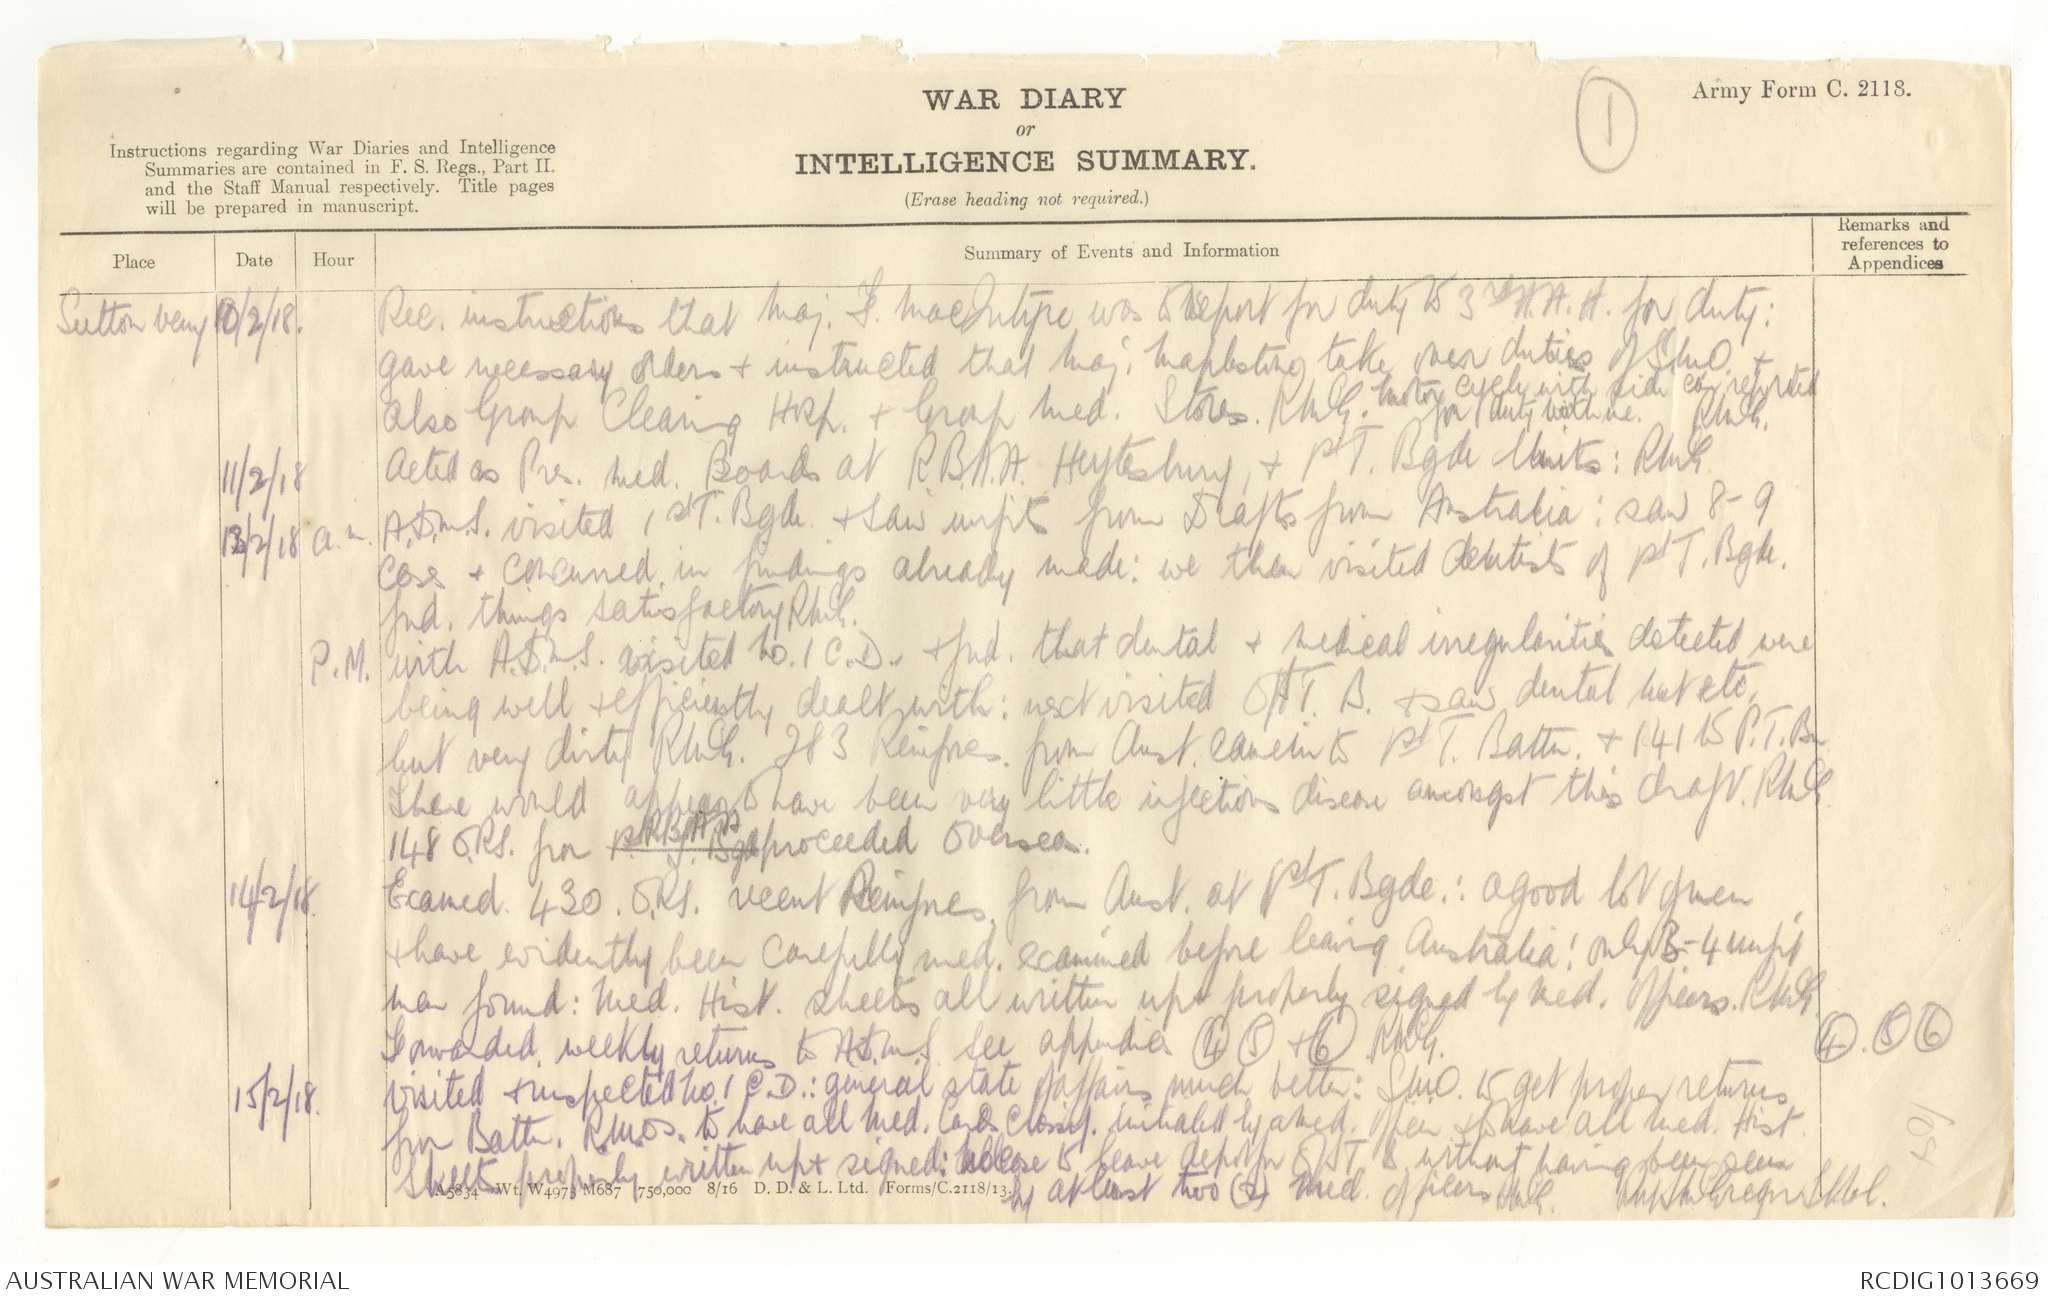 WAR DIARY
or
INTELLIGENCE SUMMARY.
(Erase heading not required.)
1
Army Form C. 2118.
Instructions regarding War Diaries and Intelligence
Summaries are contained in F. S. Regs., Part II.
and the Staff Manual respectively. Title pages
will be prepared in manuscript.
Place
Date
Hour
Summary of Events and Information
Remarks and
references to
Appendices
Sutton Veny 10/2/18. Rec. instructions that Maj. F. MacIntyre was to report for duty to 3rd A.A.H. for duty:
gave necessary orders + instructed that Maj. take over duties of S.M.O. +
also Group Clearing Hosp. + Group Med. Stores. RMcG. Motor cycle with side car reported
for duty with me. RMcG.
11/2/18 Acted as Pres. Med. Boards at R.B.A.A. Heytesbury, + 1st T. Bgde Units: RMcG
13/2/18 a.m. A.D.M.S. visited 1st T. Bgde. + saw unfits from Drafts from Australia: saw 8-9
cases + concurred in findings already made: we then visited dentists of 1st T. Bgde.
fnd. things satisfactory RMcG.
P.M. with A.D.M.S. visited No. 1 C.D. + fnd. that dental + medical irregularities detected were
being well + efficiently dealt with: next visited O/S T. B. + saw dental hut etc.
but very dirty RMcG. 283 Reinfces. from Aust. came in to 1st T. Battn. + 141 to P.T. Bn
There would appear to have been very little infectious disease amongst this draft. RMcG
148 O.RS. from R.B.A.A proceeded overseas.
14/2/18. Examed. 430. O.RS. recent Reinfces. from Aust. at 1st T. Bgde.: a good lot of men
+ have evidently been carefully med. examined before leaving Australia! only 3-4 unfit
men found: Med. Hist. sheets all written up + properly signed by Med. Officers. RMcG.
Forwarded weekly returns to A.D.M.S. see appendices 4 5 + 6 RMcG.
4. 5 6
15/2/18. visited + inspected No. 1 C.D.: general state of affairs much better: S.M.O. to get proper returns
from Battn. R.M.Os. to have all Med. Cards Classif. initialed by a med. officer + to have all med. Hist.
Sheets properly written up + signed: no case to leave depot for O/S T B without having been seen
by at least two (2) Med. officers RMcG.
A5834 Wt. W4973 M687 750,000 8/16 D. D. & L. Ltd. Forms/C.2118/13.
AUSTRALIAN WAR MEMORIAL
RCDIG1013669